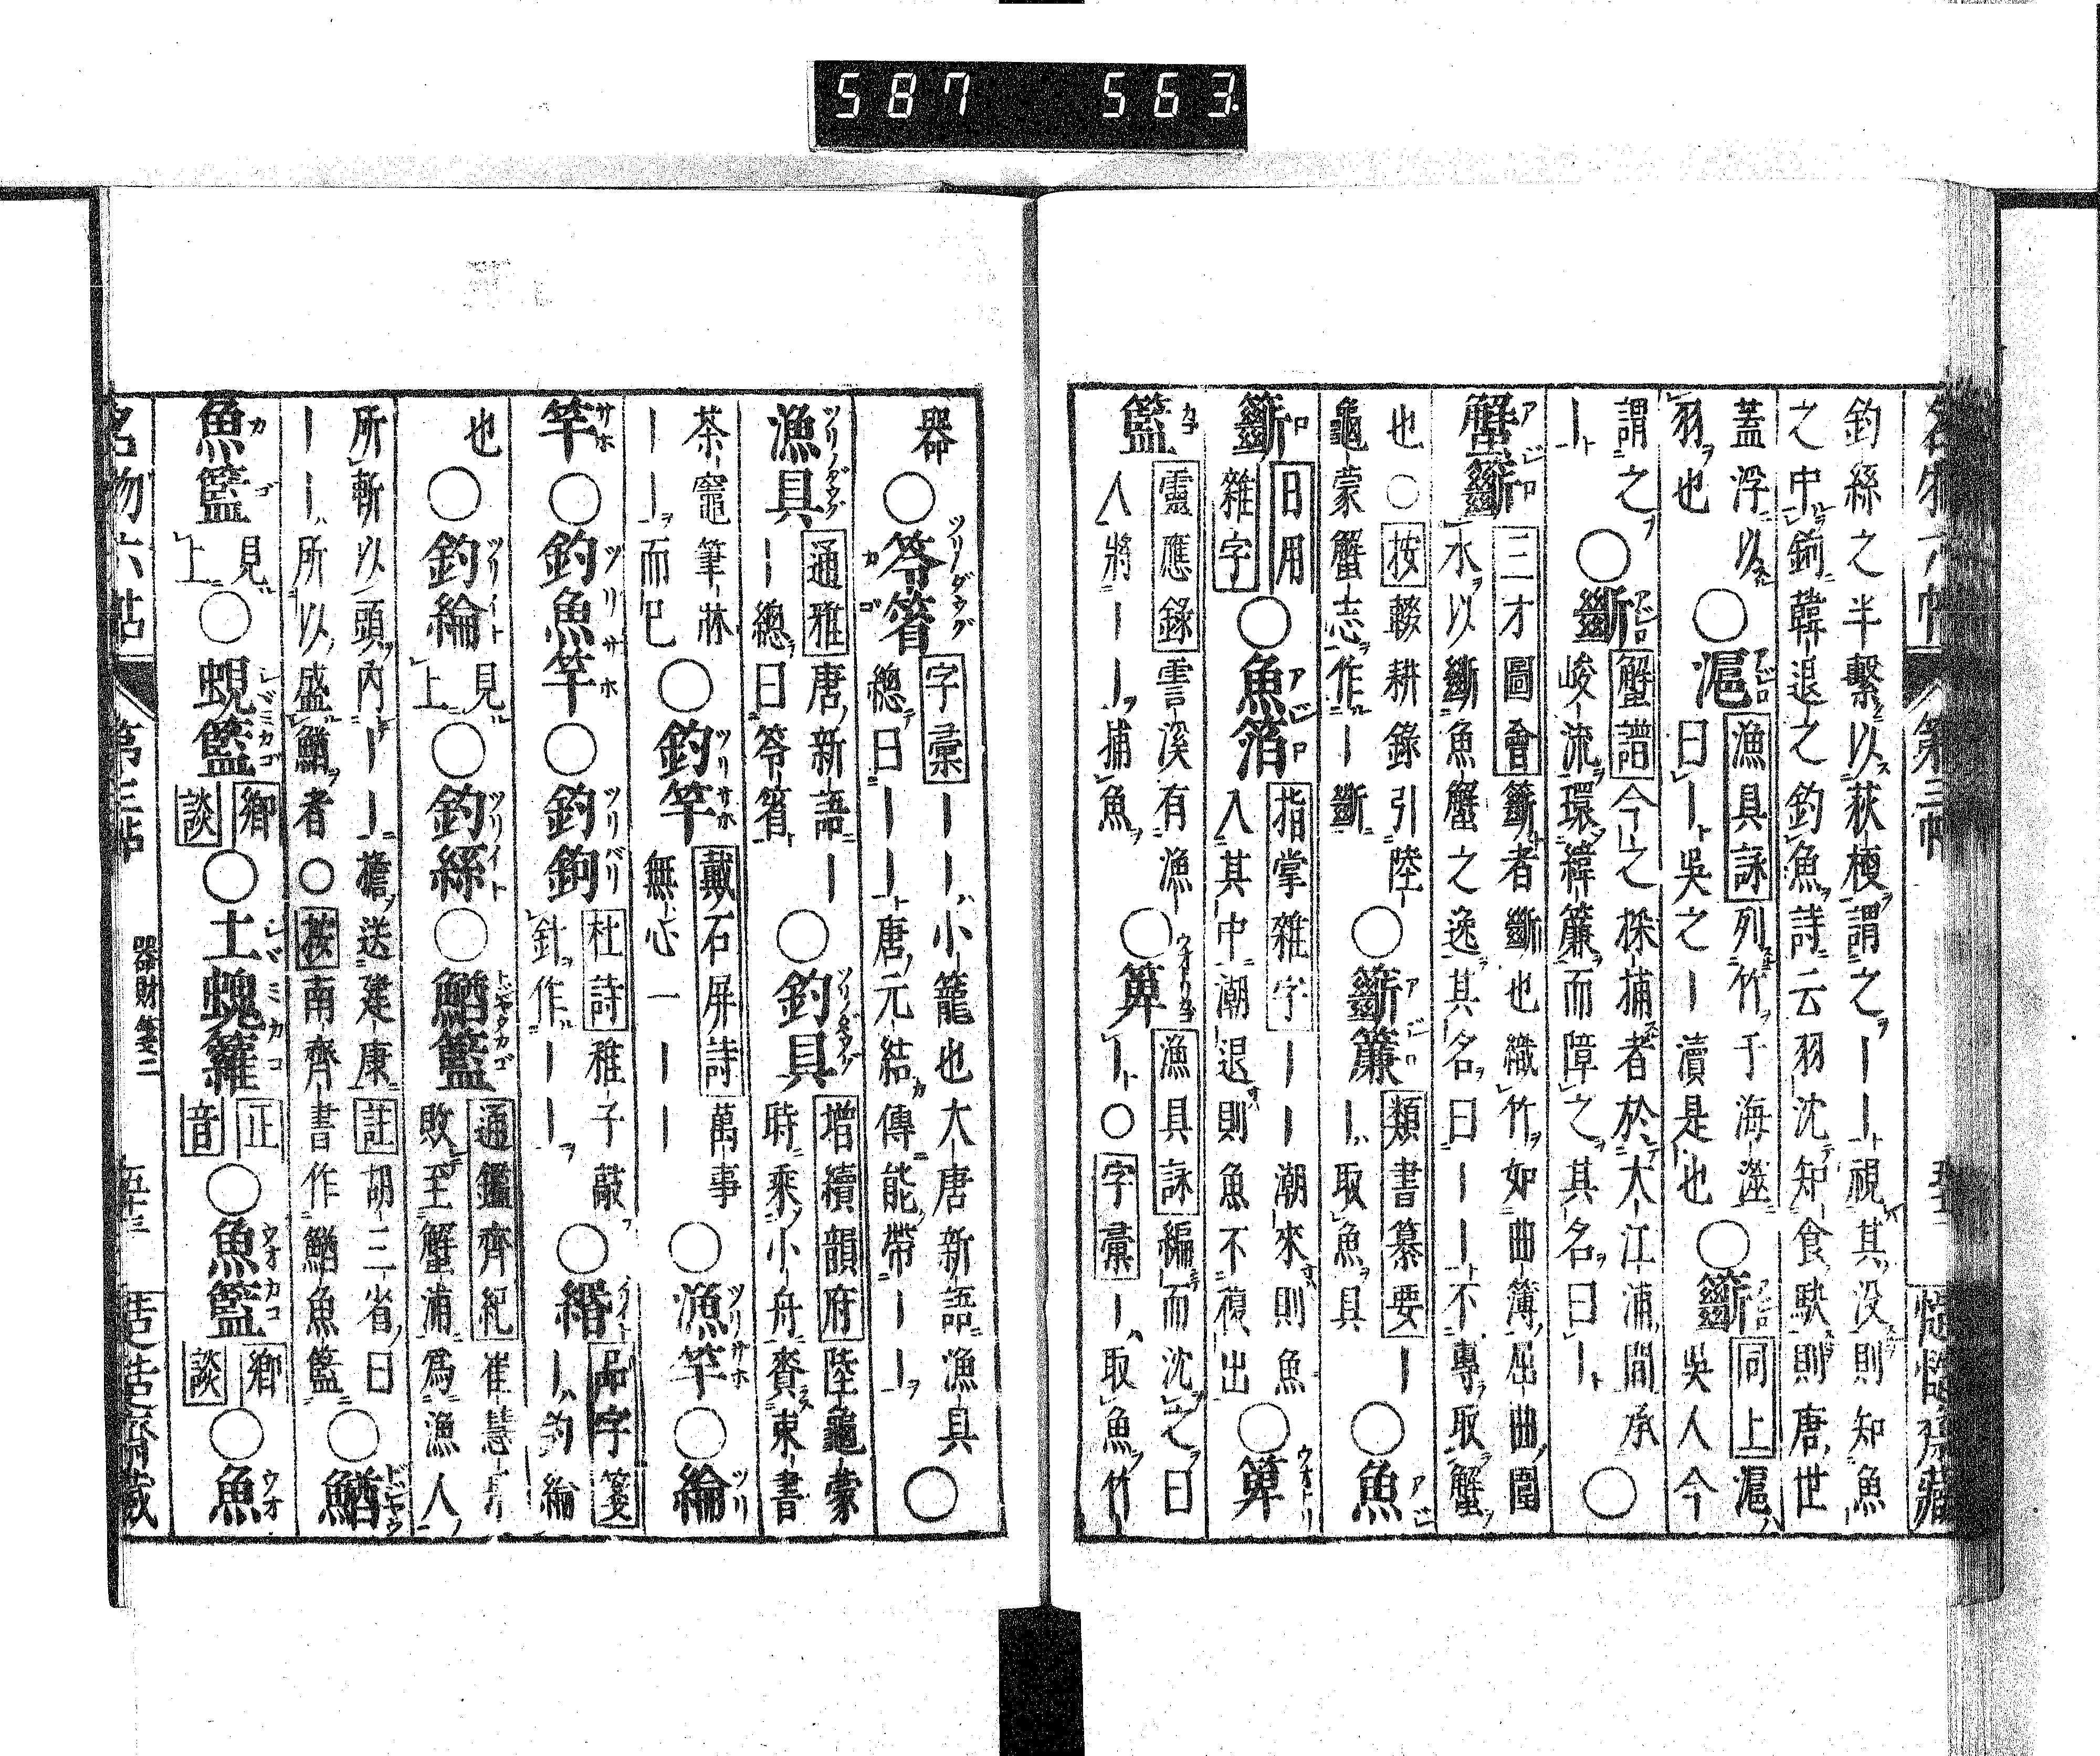 名物六帖 第三帖
釣絲之半繫以荻梗謂之——視其没則知魚
之中鉤韓退之釣魚詩云羽沈知食駃則唐世
蓋浮以
羽也
○滬
漁具詠列竹于海澨
曰—吳之—瀆是也
○籪
同上滬
吳人今
謂之
—
○斷
蟹譜今之採捕者於大江浦間承
峻流環緯簾而障之其名曰—
○
蟹籪
三才圖會籪者斷也織竹如曲簿屈曲圍
水以斷魚蟹之逸其名曰——不專取蟹
也○按輟耕錄引陸
龜蒙蟹志作—斷
○籪簾
類書纂要—
—取魚具
○魚
籪
日用
雜字
○魚箔
指掌雜字——潮來則魚
入其中潮退則魚不復出
○箄
籃
靈應錄霅溪有漁
人將——捕魚
○箄
漁具詠編而沈之曰
—○字彙—取魚竹
器
○笭箵
字彙——小籠也大唐新語漁具
總曰——唐元結傳能帶——
○
漁具
通雅唐新語—
—總曰笭箵
○釣具
增續韻府陸龜蒙
時乘小舟賫束書
茶竈筆牀
——而已
○釣竿
戴石屏詩萬事
無心一——
○漁竿○綸
竿○釣魚竿○釣鉤
杜詩稚子敲
針作——
○緡
品字箋
—釣綸
也
○釣綸
見
上
○釣絲○鰌籃
通鑑齊紀崔慧景
敗至蟹浦爲漁人
所斬以頭內——擔送建康註胡三省曰
——所以盛鰌者○按南齊書作鰌魚籃
○鰌
魚籃
見
上
○蜆籃
鄉
談
○土蜆籮
正
音
○魚籃
鄉
談
○魚
名物六帖 第三帖 器財箋二